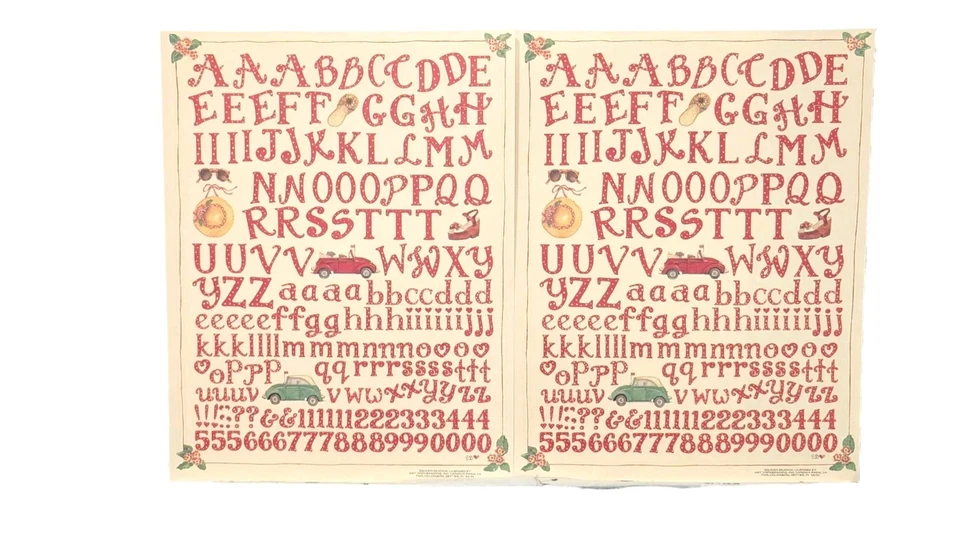 AAABBCCDDE
EEEFFGGHH
IIIIJJKKLLMM
NNOOOPPQQ
RRSSTTT
UUVVWWXY
YZZaaaabbccddd
eeeeeffgghhhiiiiiijjj
kkkllllmmmnnnooo
oppp qqrrrssssttt
uuuvvwwxxyyzz
!!!??&&11111222333444
5556667778889990000
AAABBCCDDE
EEEFFGGHH
IIIIJJKKLLMM
NNOOOPPQQ
RRSSTTT
UUVVWWXY
YZZaaaabbccddd
eeeeeffgghhhiiiiiijjj
kkkllllmmmnnnooo
oppp qqrrrssssttt
uuuvvwwxxyyzz
!!!??&&11111222333444
5556667778889990000